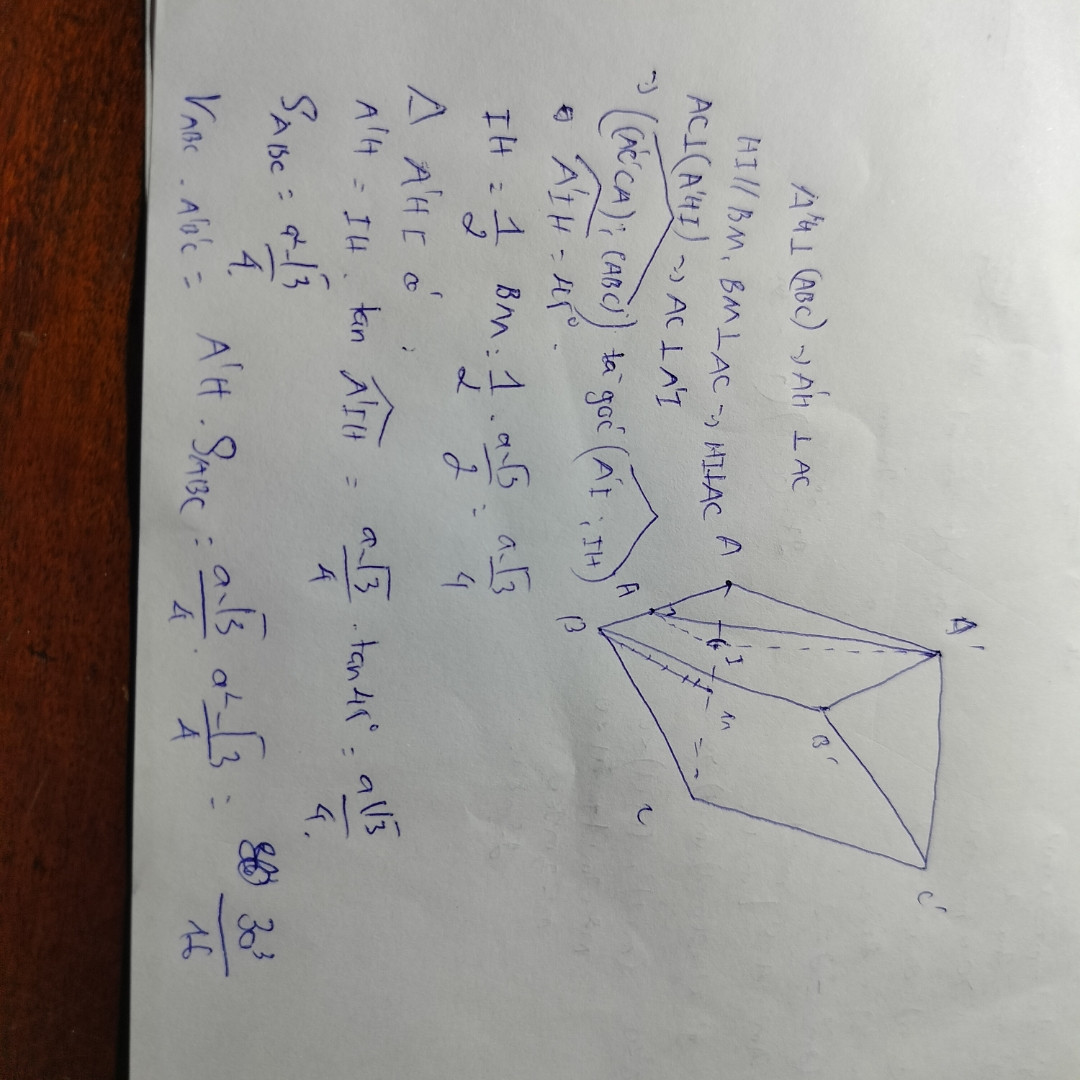 A'H ⊥ (ABC) => A'H ⊥ AC
HI // BM, BM ⊥ AC => HI ⊥ AC
AC ⊥ (A'HI) => AC ⊥ A'I
=> ((A'C'CA); (ABC)) là góc (A'I; IH)
A'IH = 45°.
IH = 1/2 BM = 1/2 . a√3/2 = a√3/4
Δ A'HI có:
A'H = IH . tan A'IH = a√3/4 . tan 45° = a√3/4.
S ABC = a√3/4.
V ABC . A'B'C' = A'H . S ABC = a√3/4 . a²√3/4 = 3a³/16
A
A'
H
I
B
M
B'
C
C'